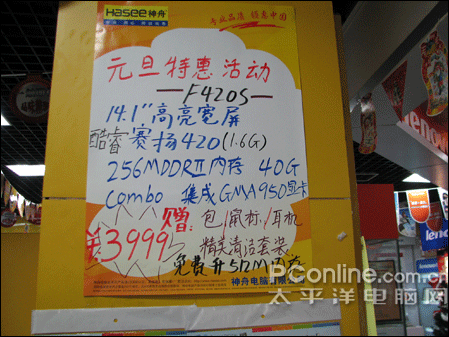 Hasee 神舟
专业品质 锁惠中国
元旦特惠活动
—F420S—
14.1"高亮宽屏
酷睿赛扬420(1.6G)
256MDDRII内存 40G
Combo 集成GMA950显卡
赠: 包/鼠标/耳机
¥3999 精美清洁套装
免费升512M内存
神舟电脑有限公司
PConline.com.cn
太平洋电脑网
lenovo